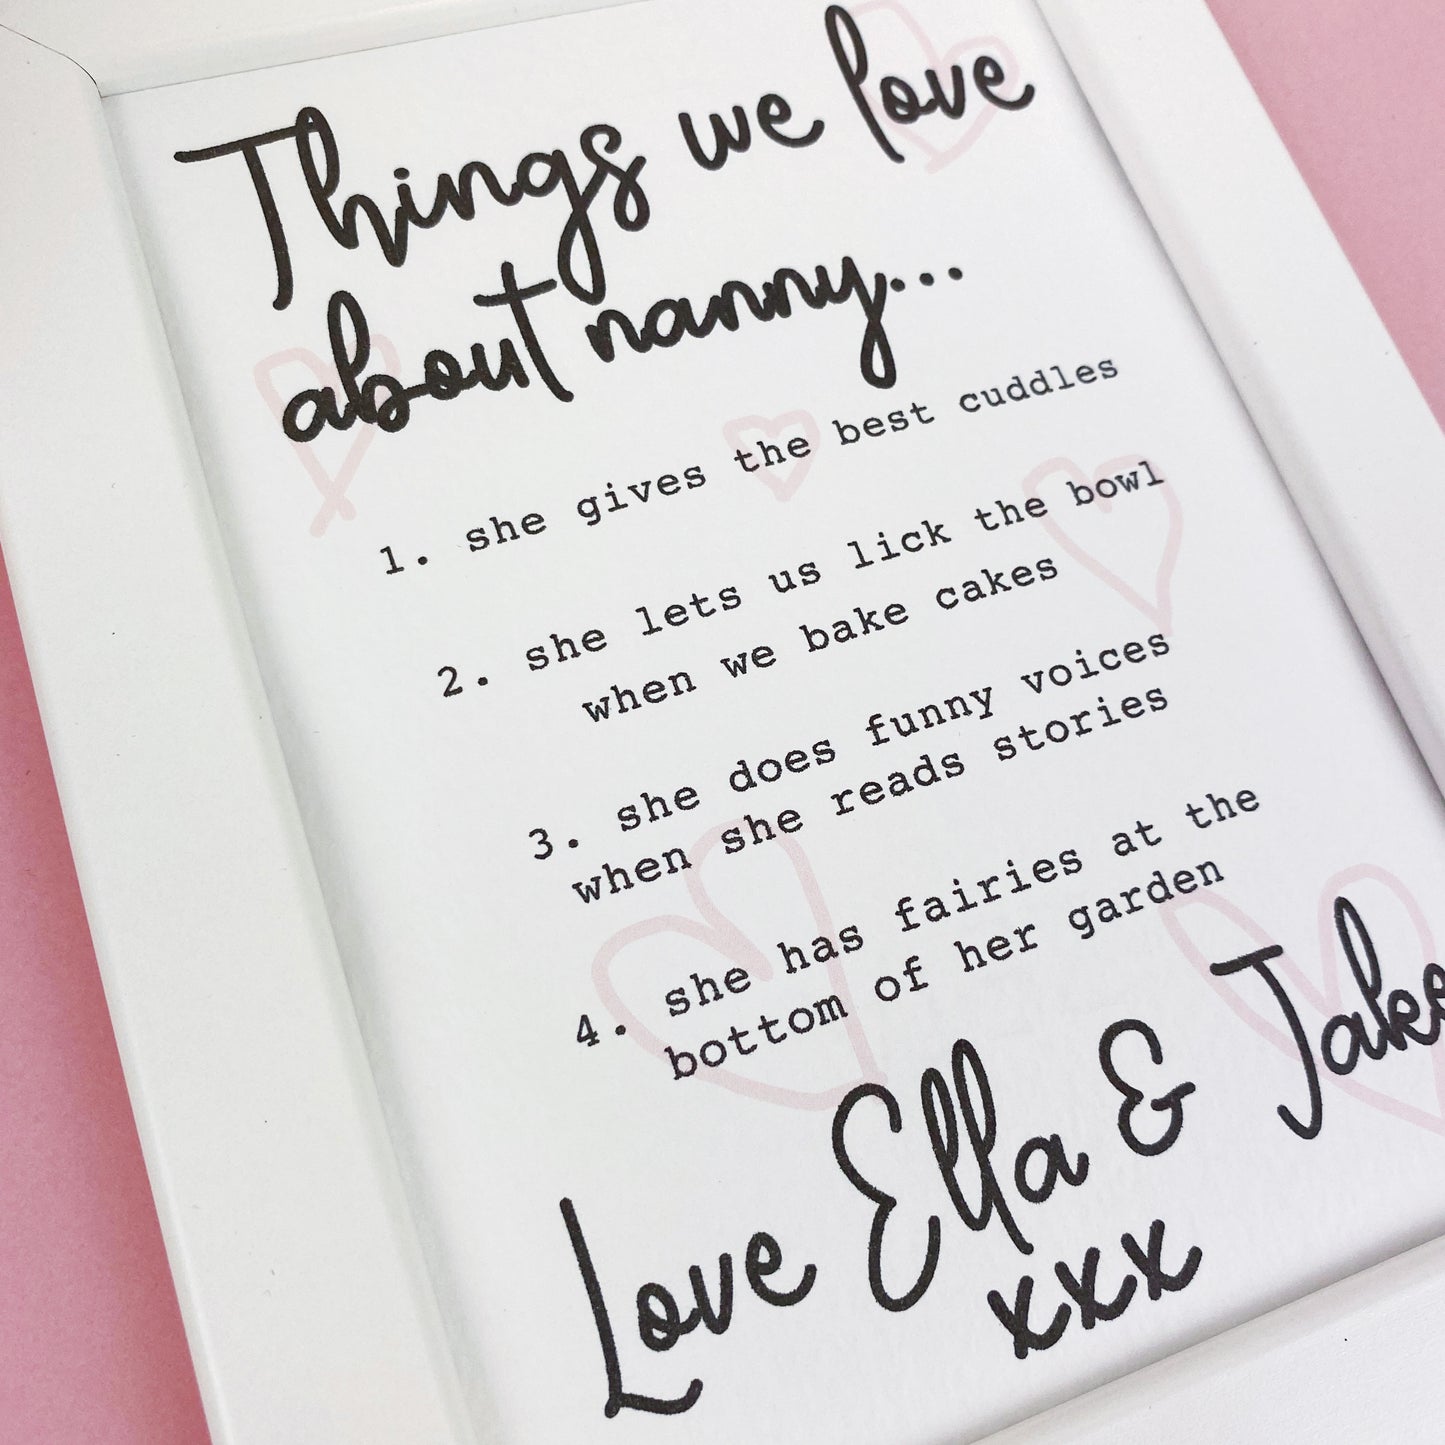 Things we love
about nanny...
1. she gives the best cuddles
2. she lets us lick the bowl
when we bake cakes
3. she does funny voices
when she reads stories
4. she has fairies at the
bottom of her garden
Love Ella & Jake
xxx